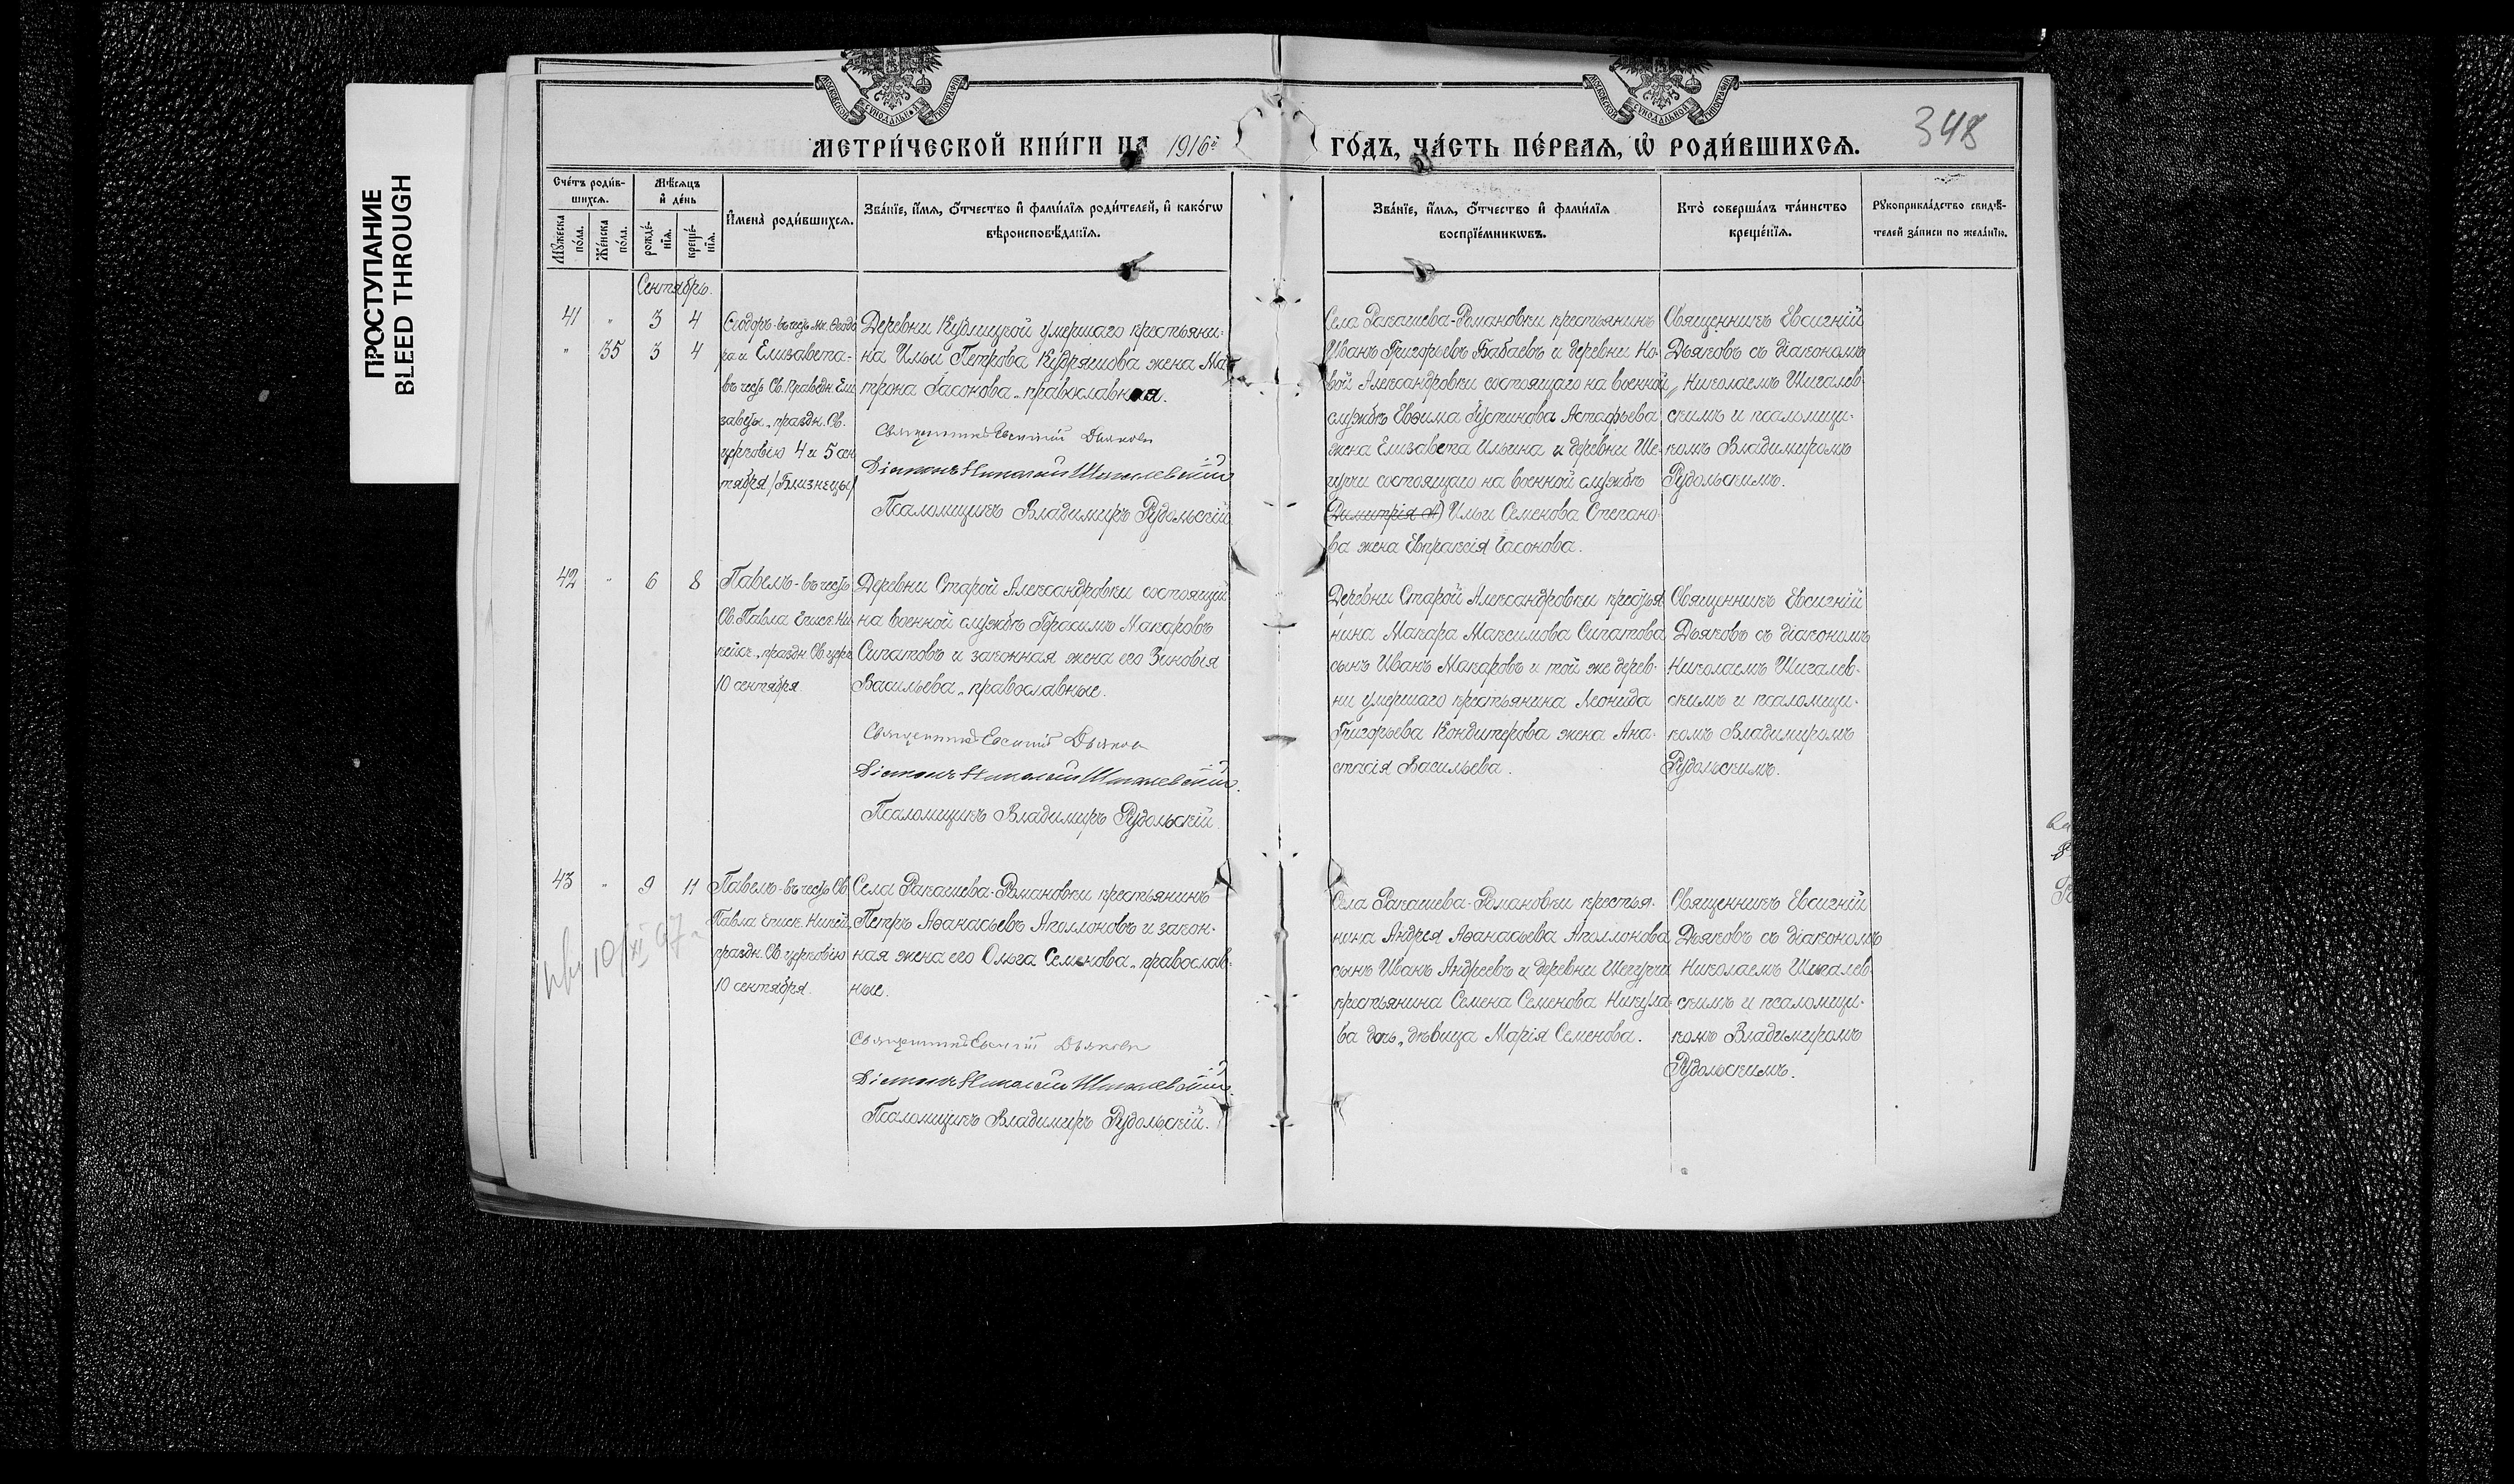 ПРОСТУПАНИЕ
BLEED THROUGH
МЕТРИ́ЧЕСКОЙ КНИ́ГИ НА 1916й
ГО́ДЪ, ЧА́СТЬ ПЕ́РВАѦ, Ѡ҆ РОДИ́ВШИХСѦ.
348
Сче́тъ роди́в-
шихсѧ.
Мꙋ́жеска
по́ла.
Же́нска
по́ла.
Мѣ́сѧцъ
и҆ де́нь
рожде́-
нїѧ.
креще́-
нїѧ.
И҆мена̀ роди́вшихсѧ.
Зва́нїе, и҆́мѧ, ѻ҆́тчество и҆ фами́лїѧ роди́телей, и҆ како́гѡ
вѣроисповѣ́данїѧ.
Зва́нїе, и҆́мѧ, ѻ҆́тчество и҆ фами́лїѧ
воспрїе́мникѡвъ.
Кто̀ соверша́лъ та́инство
креще́нїѧ.
Рꙋкоприкла́дство свидѣ́-
телей за́писи по жела́нїю.
Сентябрь.
41 " 3 4
" 35 3 4
Ѳеодоръ - въ честь мч. Ѳеодо
ра и Елизавета -
въ честь Св. Праведн. Ели
заветы, праздн. Св.
церковію 4 и 5 сен
тября /Близнецы/
Деревни Кудлицкой умершаго крестьяни-
на Ильи Петрова Кудряшова жена Ма
трона Іасонова, православная.
Священникъ Евсигній Дьяковъ
Діаконъ Николай Шигалевскій
Псаломщикъ Владимиръ Рудольскій
Села Ракашева-Романовки крестьянинъ
Иванъ Григорьевъ Бабаевъ и деревни Но-
вой Александровки состоящаго на военной
службѣ Евѳима Іустинова Астафьева
жена Елизавета Ильина и деревни Ше-
гурчи состоящаго на военной службѣ
(Димитрія А) Ильи Семенова Степано-
ва жена Евпраксія Іасонова.
Священникъ Евсигній
Дьяковъ съ діакономъ
Николаемъ Шигалев-
скимъ и псаломщи-
комъ Владимиромъ
Рудольскимъ.
42 " 6 8
Павелъ - въ честь
Св. Павла Еписк. Ни-
кейск., праздн. Св. церк.
10 сентября.
Деревни Старой Александровки состоящій
на военной службѣ Герасимъ Макаровъ
Сипатовъ и законная жена его Зиновія
Васильева, православные.
Священникъ Евсигній Дьяковъ
Діаконъ Николай Шигалевскій.
Псаломщикъ Владимиръ Рудольскій.
Деревни Старой Александровки крестья
нина Макара Максимова Сипатова
сынъ Иванъ Макаровъ и той же дерев-
ни умершаго крестьянина Леонида
Григорьева Кондитерова жена Ана-
стасія Васильева.
Священникъ Евсигній
Дьяковъ съ діакономъ
Николаемъ Шигалев-
скимъ и псаломщи-
комъ Владимиромъ
Рудольскимъ.
43 " 9 11
Павелъ - въ честь Св.
Павла Еписк. Никей.,
праздн. Св. церковію
10 сентября.
Села Ракашева-Романовки крестьянинъ
Петръ Аѳанасьевъ Аполлоновъ и закон-
ная жена его Ольга Семенова, православ-
ные.
Священникъ Евсигній Дьяковъ
Діаконъ Николай Шигалевскій.
Псаломщикъ Владимиръ Рудольскій.
Села Ракашева-Романовки крестья-
нина Андрея Аѳанасьева Аполлонова
сынъ Иванъ Андреевъ и деревни Шегурчи
крестьянина Семена Семенова Никула-
ва дочь, дѣвица Марія Семенова.
Священникъ Евсигній
Дьяковъ съ діакономъ
Николаемъ Шигалев-
скимъ и псаломщи-
комъ Владимиромъ
Рудольскимъ.